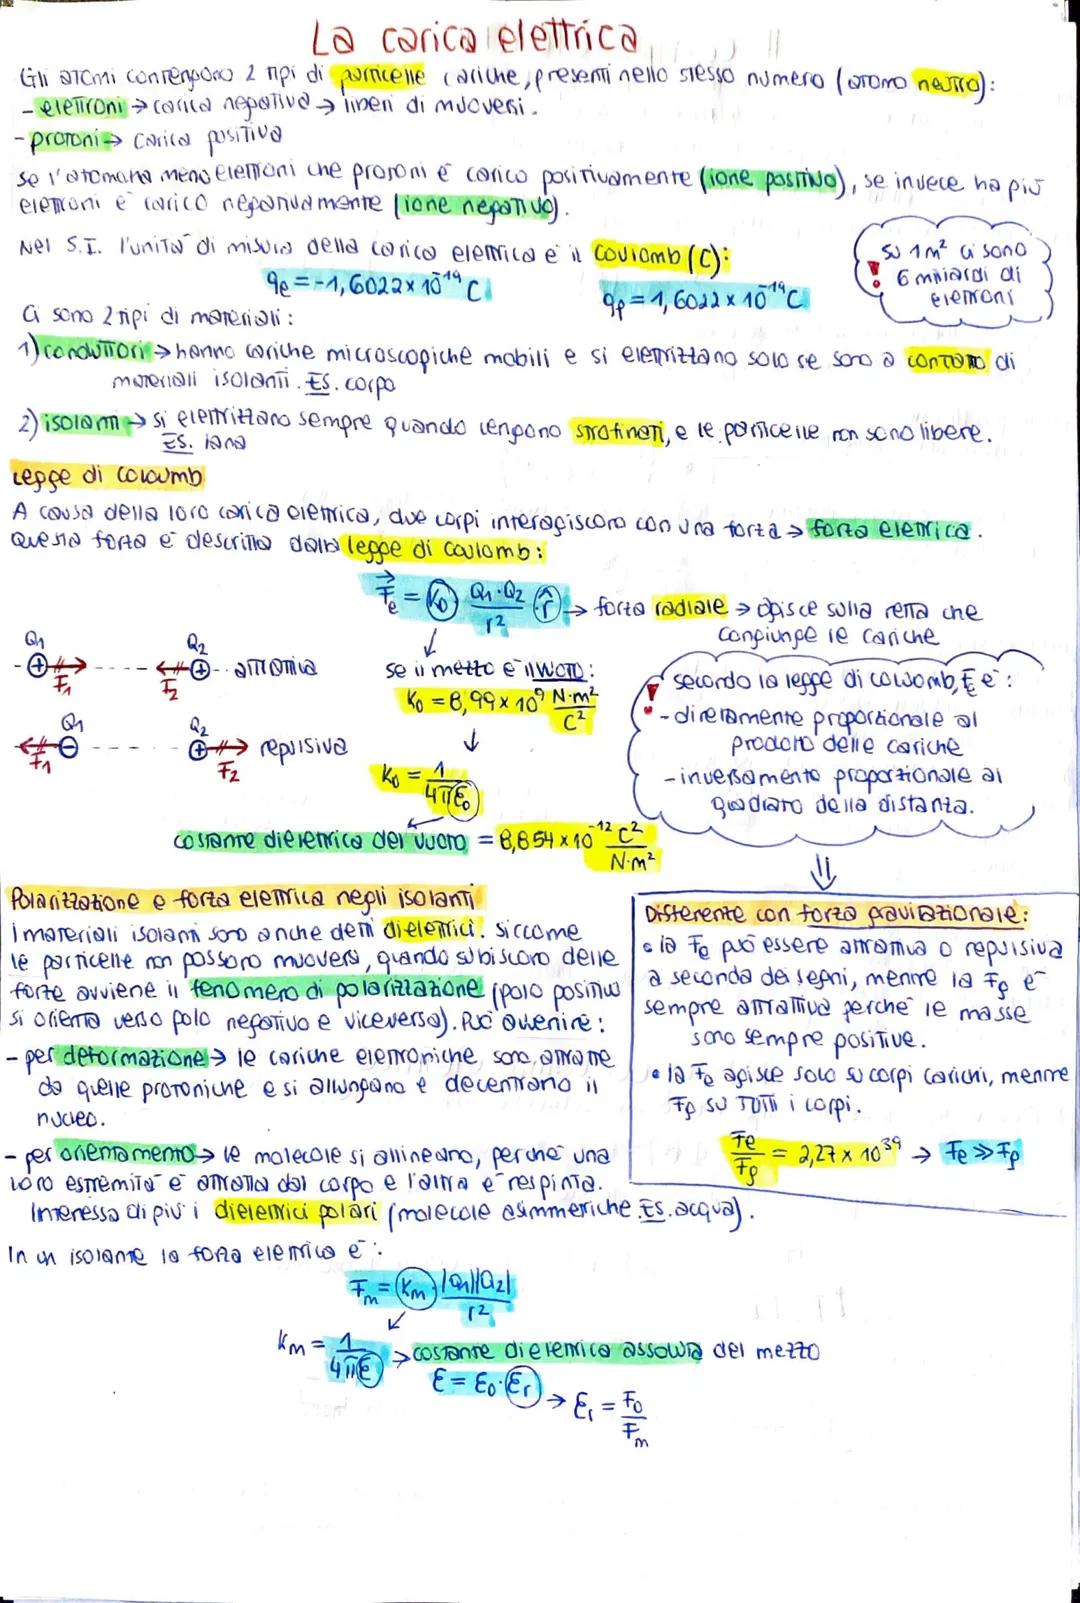 La carica elettrica
Gli atomi contengono 2 tipi di particelle cariche, presenti nello stesso numero (atomo neutro):
- elettroni → carica negativa → liberi di muoversi.
- protoni → carica positiva
se l'atomo ha meno elettroni che protoni è carico positivamente (ione positivo), se invece ha più
elettroni è carico negativamente (ione negativo).
Nel S.I. l'unità di misura della carica elettrica è il Coulomb (C):
qe = -1,6022 × 10⁻¹⁹ C
qp = 1,6022 × 10⁻¹⁹ C
! su 1 m² ci sono
6 miliardi di
elettroni
Ci sono 2 tipi di materiali:
1) conduttori → hanno cariche microscopiche mobili e si elettrizzano solo se sono a contatto di
materiali isolanti. ES. corpo
2) isolanti → si elettrizzano sempre quando vengono strofinati, e le particelle non sono libere.
ES. lana
Legge di coloumb
A causa della loro carica elettrica, due corpi interagiscono con una forza → forza elettrica.
Questa forza è descritta dalla legge di coulomb:
F⃗e = K₀ Q₁·Q₂ / r² r̂ → forza radiale → agisce sulla retta che
congiunge le cariche
Q₁ Q₂
+ - - - - + - - attrattiva
F₁ F₂
Q₁ Q₂
- - - - - + repulsiva
F₁ F₂
se il mezzo è il vuoto:
K₀ = 8,99 × 10⁹ N·m² / C²
K₀ = 1 / 4πε₀
costante dielettrica del vuoto = 8,854 × 10⁻¹² C² / N·m²
! secondo la legge di coloumb, F è:
- direttamente proporzionale al
prodotto delle cariche
- inversamente proporzionale al
quadrato della distanza.
⇓
Polarizzazione e forza elettrica negli isolanti
I materiali isolanti sono anche detti dielettrici. Siccome
le particelle non possono muoversi, quando subiscono delle
forze avviene il fenomeno di polarizzazione (polo positivo
si orienta verso polo negativo e viceversa). Può avvenire:
- per deformazione → le cariche elettroniche sono attratte
da quelle protoniche e si allungano e decentrano il
nucleo.
- per orientamento → le molecole si allineano, perché una
loro estremità è attratta dal corpo e l'altra è respinta.
Interessa di più i dielettrici polari (molecole asimmetriche. ES. acqua).
Differente con forza gravitazionale:
• la Fe può essere attrattiva o repulsiva
a seconda dei segni, mentre la Fg è
sempre attrattiva perché le masse
sono sempre positive.
• la Fe agisce solo su corpi carichi, mentre
Fg su TUTTI i corpi.
Fe / Fg = 2,27 × 10³⁹ → Fe ≫ Fg
In un isolante la forza elettrica è:
Fm = Km · |Q₁||Q₂| / r²
Km = 1 / 4πε → costante dielettrica assoluta del mezzo
ε = ε₀·εr → εr = F₀ / Fm